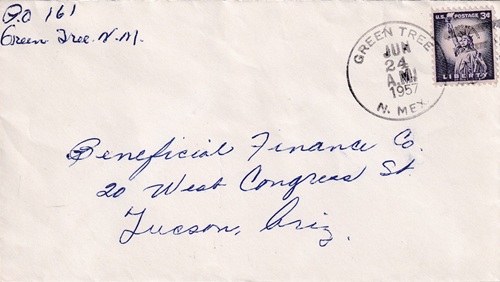 P.O 161
Green Tree. N.M.
GREEN TREE
JUN
24
A.M.
1957
N. MEX.
U.S. POSTAGE 3¢
LIBERTY
Beneficial Finance Co.
20 West Congress St.
Tucson, Ariz.